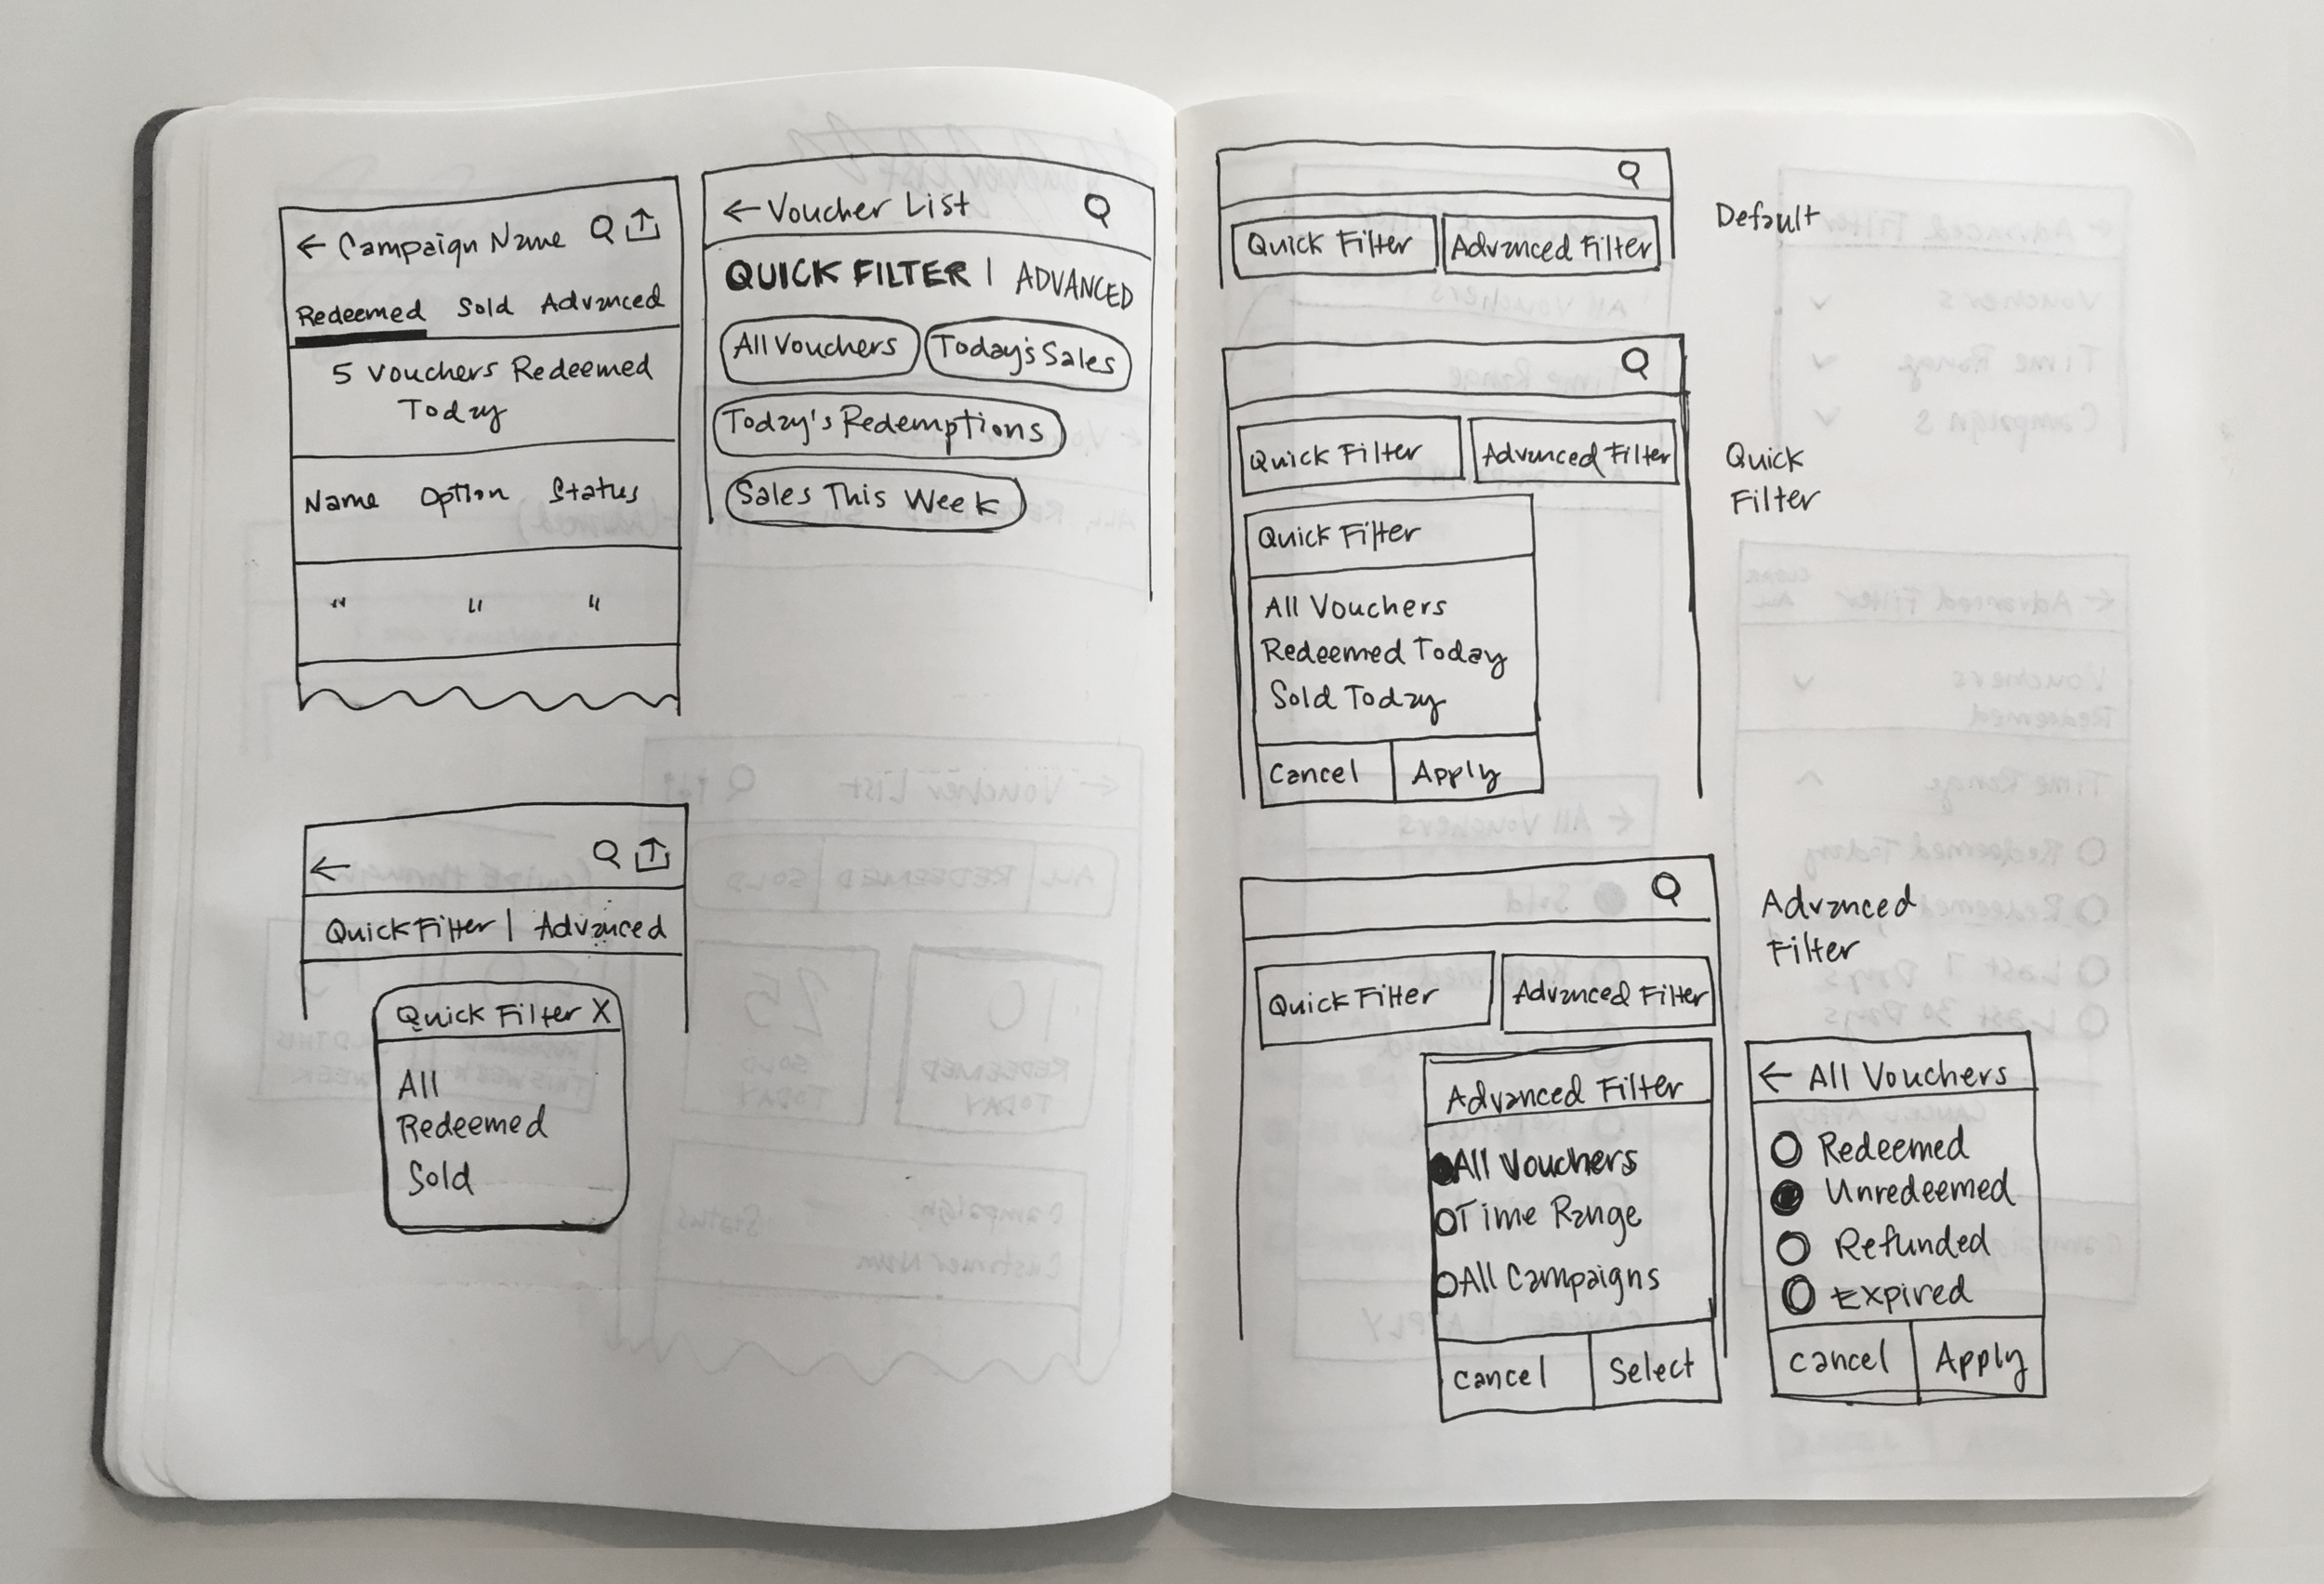 ← Campaign Name
Redeemed Sold Advanced
5 Vouchers Redeemed
Today
Name Option Status
" " "
← Voucher List
QUICK FILTER | ADVANCED
All Vouchers Today's Sales
Today's Redemptions
Sales This Week
←
Quick Filter | Advanced
Quick Filter X
All
Redeemed
Sold
Quick Filter Advanced Filter
Default
Quick Filter Advanced Filter
Quick Filter
All Vouchers
Redeemed Today
Sold Today
Cancel Apply
Quick
Filter
Quick Filter Advanced Filter
Advanced
Filter
Advanced Filter
All Vouchers
Time Range
All Campaigns
Cancel Select
← All Vouchers
Redeemed
Unredeemed
Refunded
Expired
Cancel Apply